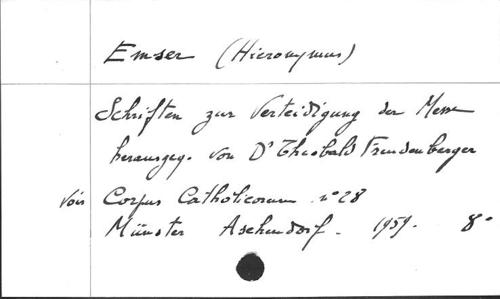 Emser (Hieronymus)
Schriften zur Verteidigung der Messe
herausgeg. von Dr Theobald Freudenberger
vois Corpus Catholicorum n° 28
Münster Aschendorf. 1959. 8°